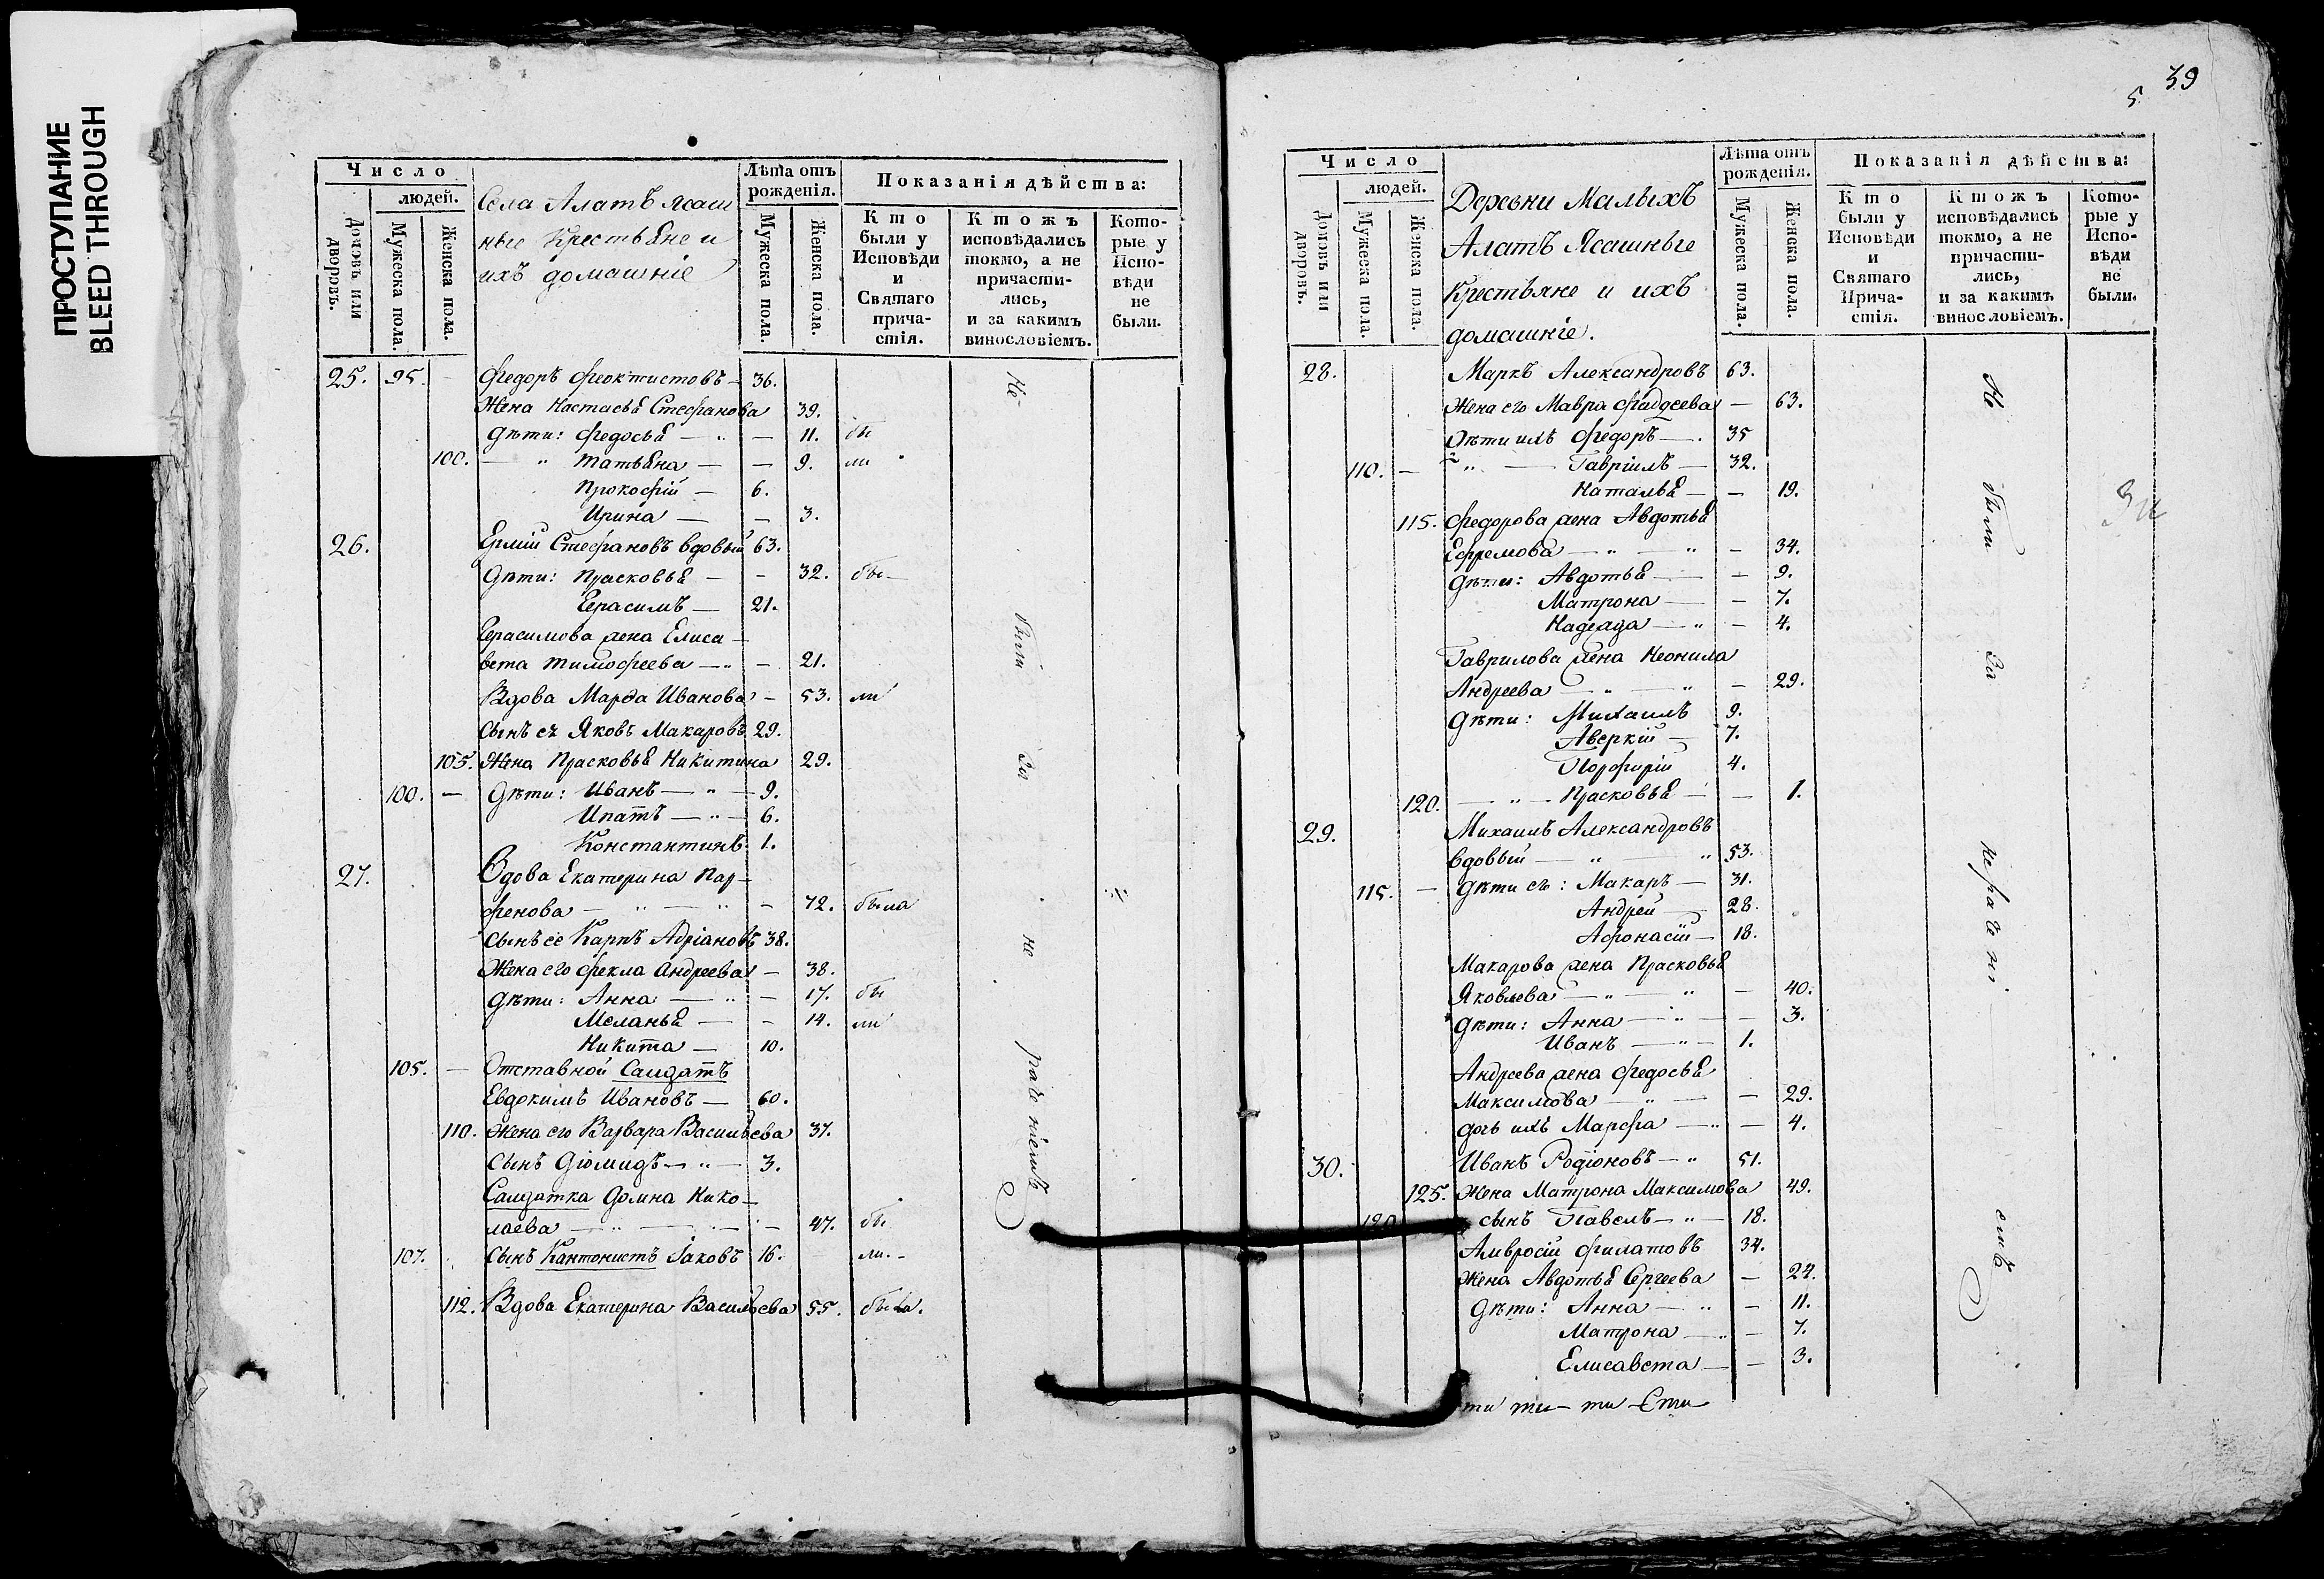 ПРОСТУПАНИЕ
BLEED THROUGH
Число
людей.
Домовъ или дворовъ.
Мужеска пола.
Женска пола.
Села Алатъ ясаш
ные Крестьяне и
ихъ домашніе
Лѣта отъ рожденія.
Мужеска пола.
Женска пола.
Показанія дѣйства:
Кто были у Исповѣди и Святаго причастія.
Ктожъ исповѣдались токмо, а не причастились, и за какимъ винословіемъ.
Которые у Исповѣди не были.
25. 95. Федоръ Феоктистовъ 36.
Жена Настасья Стефанова 39.
Дѣти: Федосья 11. бы
100. Татьяна 9. ли
Прокофій 6.
Ирина 3.
26. Ермій Стефановъ вдовый 63.
Дѣти: Прасковья 32. бы
Герасимъ 21.
Герасимова жена Елиса
вета Тимофеева 21.
Вдова Марѳа Иванова 53. ли
Сынъ ея Яковъ Макаровъ 29.
105. Жена Прасковья Никитина 29.
100. Дѣти: Иванъ 9.
Ипатъ 6.
Константинъ 1.
27. Вдова Екатерина Пар
фенова 72. была
Сынъ ее Карпъ Адріановъ 38.
Жена его Фекла Андреева 38.
Дѣти: Анна 17. бы
Меланья 14. ли
Никита 10.
105. Отставной Салдатъ
Евдокимъ Ивановъ 60.
110. Жена его Варвара Васильева 37.
Сынъ Діомидъ 3.
Салдатка Домна Нико
лаева 47. бы
107. Сынъ Кантонистъ Іаковъ 16. ли.
112. Вдова Екатерина Васильева 55. была.
Не были за не раченіемъ
39
5.
Число
людей.
Домовъ или дворовъ.
Мужеска пола.
Женска пола.
Деревни Малыхъ
Алатъ Ясашные
Крестьяне и ихъ
домашніе.
Лѣта отъ рожденія.
Мужеска пола.
Женска пола.
Показанія дѣйства:
Кто были у Исповѣди и Святаго Причастія.
Ктожъ исповѣдались токмо, а не причастились, и за какимъ винословіемъ.
Которые у Исповѣди не были.
28. Маркъ Александровъ 63.
Жена его Мавра Фаддеева 63.
Дѣти ихъ Федоръ 35
110. Гавріилъ 32.
Наталья 19.
115. Федорова жена Авдотья
Ефремова 34.
Дѣти: Авдотья 9.
Матрона 7.
Надежда 4.
Гаврилова жена Неонила
Андреева 29.
Дѣти: Михаилъ 9.
Аверкій 7.
Порфирій 4.
120. Прасковья 1.
29. Михаилъ Александровъ
вдовый 53.
115. Дѣти его: Макаръ 31.
Андрей 28.
Афонасій 18.
Макарова жена Прасковья
Яковлева 40.
Дѣти: Анна 3.
Иванъ 1.
Андреева жена Федосья
Максимова 29.
Дочь ихъ Марфа 4.
30. Иванъ Родіоновъ 51.
125. Жена Матрона Максимова 49.
120. сынъ Павелъ 18.
Амвросій Филатовъ 34.
Жена Авдотья Сергеева 24.
Дѣти: Анна 11.
Матрона 7.
Елисавета 3.
Не были за не рачені емъ